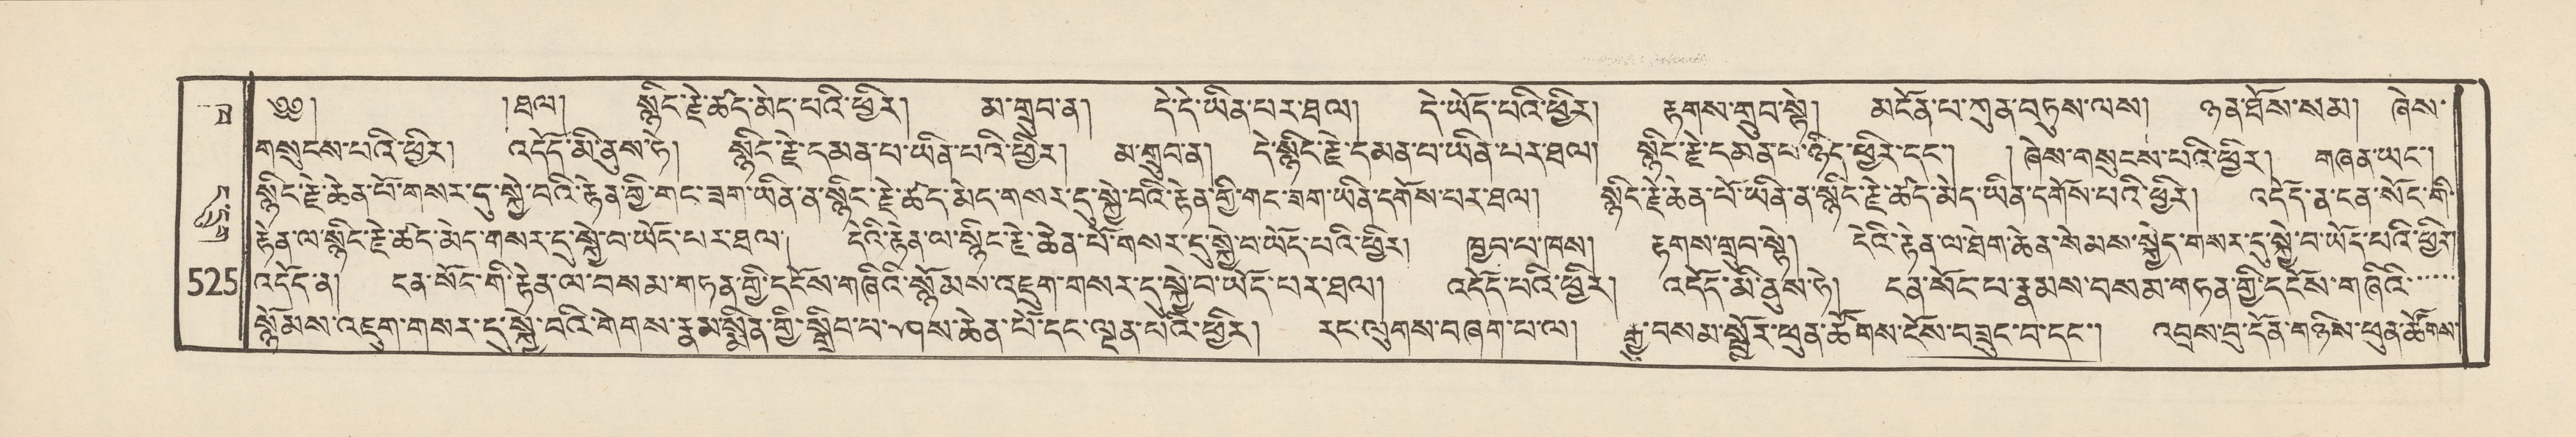 ༄༅། །ཐལ། སྙིང་རྗེ་ཚད་མེད་པའི་ཕྱིར། མ་གྲུབ་ན། དེ་དེ་ཡིན་པར་ཐལ། དེ་ཡོད་པའི་ཕྱིར། རྟགས་གྲུབ་སྟེ། མངོན་པ་ཀུན་བཏུས་ལས། ཉན་ཐོས་སམ། ཞེས་
གསུངས་པའི་ཕྱིར། འདོད་མི་ནུས་ཏེ། སྙིང་རྗེ་དམན་པ་ཡིན་པའི་ཕྱིར། མ་གྲུབ་ན། དེ་སྙིང་རྗེ་དམན་པ་ཡིན་པར་ཐལ། སྙིང་རྗེ་དམན་པ་ཉིད་ཕྱིར་དང་། །ཞེས་གསུངས་པའི་ཕྱིར། གཞན་ཡང་།
སྙིང་རྗེ་ཆེན་པོ་གསར་དུ་སྐྱེ་བའི་རྟེན་གྱི་གང་ཟག་ཡིན་ན་སྙིང་རྗེ་ཚད་མེད་གསར་དུ་སྐྱེ་བའི་རྟེན་གྱི་གང་ཟག་ཡིན་དགོས་པར་ཐལ། སྙིང་རྗེ་ཆེན་པོ་ཡིན་ན་སྙིང་རྗེ་ཚད་མེད་ཡིན་དགོས་པའི་ཕྱིར། འདོད་ན་ངན་སོང་གི་
རྟེན་ལ་སྙིང་རྗེ་ཚད་མེད་གསར་དུ་སྐྱེ་བ་ཡོད་པར་ཐལ། དེའི་རྟེན་ལ་སྙིང་རྗེ་ཆེན་པོ་གསར་དུ་སྐྱེ་བ་ཡོད་པའི་ཕྱིར། ཁྱབ་པ་ཁས། རྟགས་གྲུབ་སྟེ། དེའི་རྟེན་ལ་ཐེག་ཆེན་སེམས་སྐྱེད་གསར་དུ་སྐྱེ་བ་ཡོད་པའི་ཕྱིར།
525 འདོད་ན། ངན་སོང་གི་རྟེན་ལ་བསམ་གཏན་གྱི་དངོས་གཞིའི་སྙོམས་འཇུག་གསར་དུ་སྐྱེ་བ་ཡོད་པར་ཐལ། འདོད་པའི་ཕྱིར། འདོད་མི་ནུས་ཏེ། ངན་སོང་པ་རྣམས་བསམ་གཏན་གྱི་དངོས་གཞིའི་
སྙོམས་འཇུག་གསར་དུ་སྐྱེ་བའི་གེགས་རྣམ་སྨིན་གྱི་སྒྲིབ་པ་ཤས་ཆེན་པོ་དང་ལྡན་པའི་ཕྱིར། རང་ལུགས་བཞག་པ་ལ། རྒྱུ་བསམ་སྦྱོར་ཕུན་ཚོགས་ངོས་བཟུང་བ་དང་། འབྲས་བུ་དོན་གཉིས་ཕུན་ཚོགས་